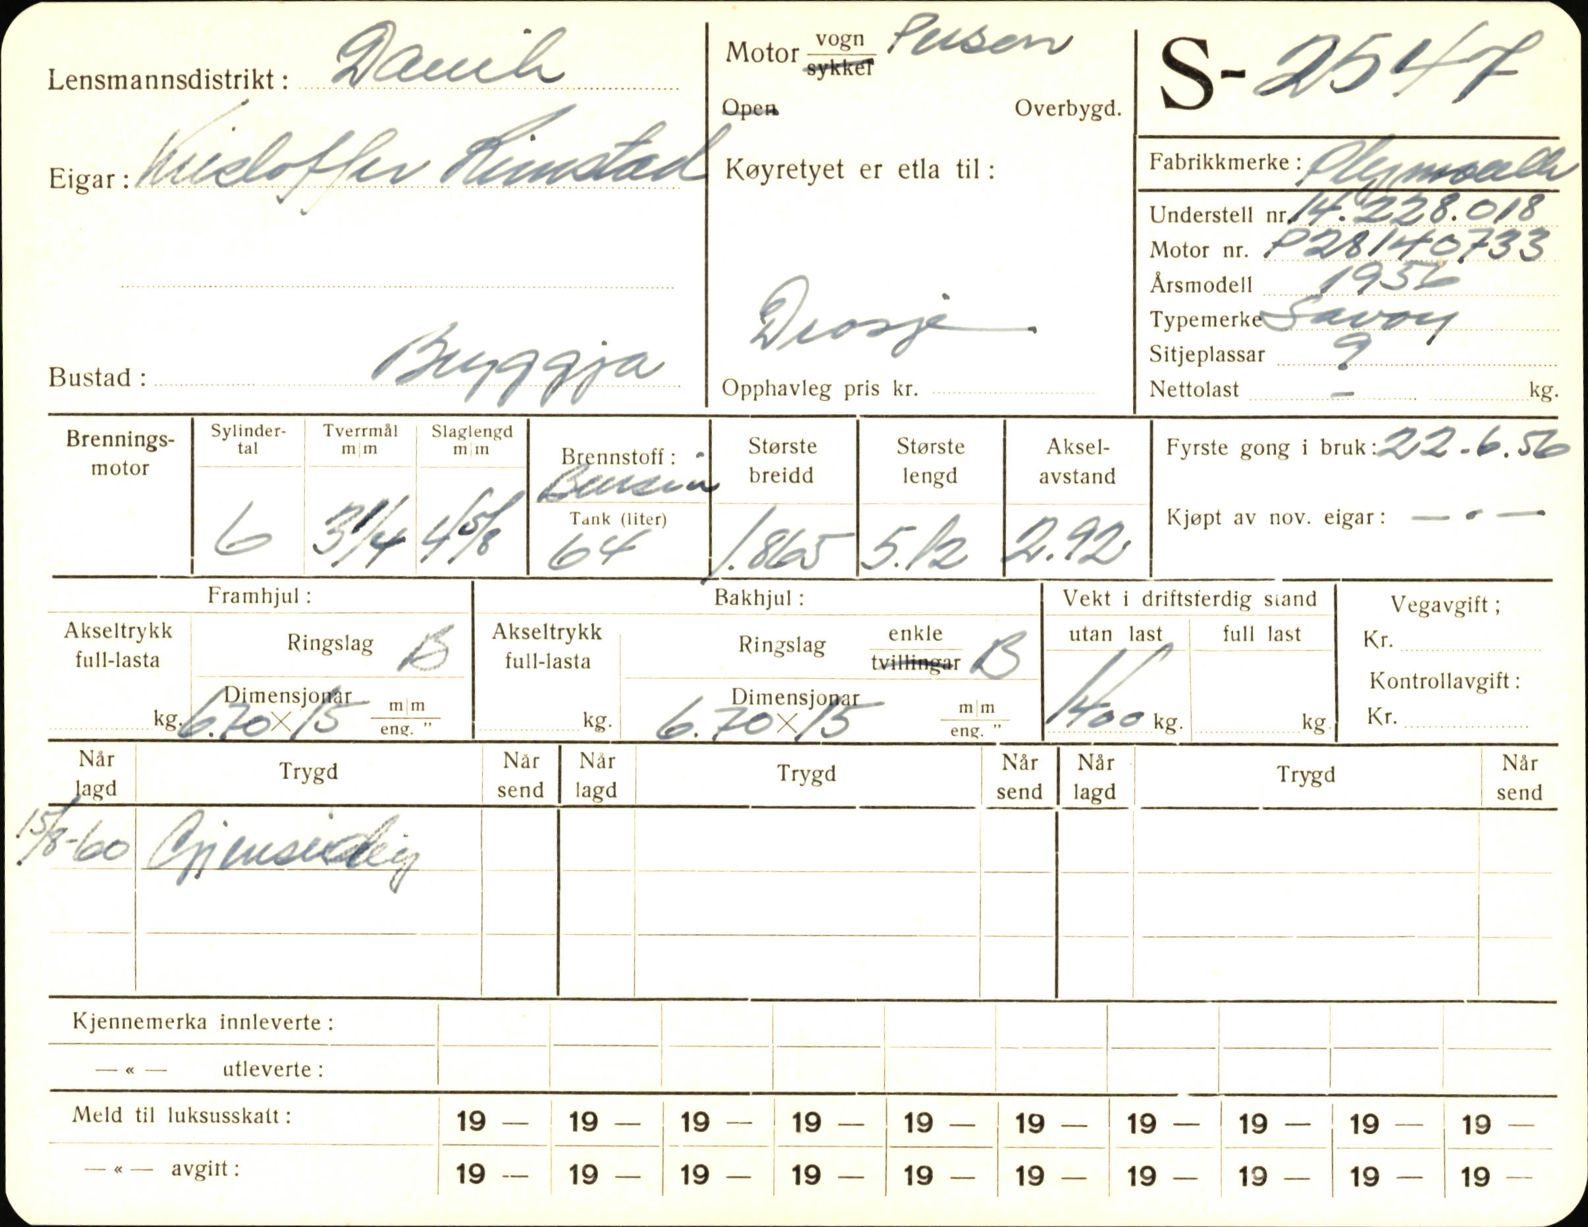 Lensmannsdistrikt: Davik
Eigar: Kristoffer Rimstad
Bustad: Bryggja
Motor vogn Person
sykkel
Open Overbygd.
Køyretyet er etla til:
Drosje
Opphavleg pris kr.
S-2547
Fabrikkmerke: Plymouth
Understell nr. 14.228.018
Motor nr. P28140733
Årsmodell 1956
Typemerke Savoy
Sitjeplassar 9
Nettolast — kg.
Brennings-
motor
Sylinder-
tal
6
Tverrmål
m|m
3 1/4
Slaglengd
m|m
4 5/8
Brennstoff:
Bensin
Tank (liter)
64
Største
breidd
1.865
Største
lengd
5.12
Aksel-
avstand
2.92
Fyrste gong i bruk: 22-6.56
Kjøpt av nov. eigar: — " —
Framhjul:
Akseltrykk
full-lasta
kg.
Ringslag B
Dimensjonar
6.70 × 15 m|m
eng. "
Bakhjul:
Akseltrykk
full-lasta
kg.
Ringslag enkle B
tvillingar
Dimensjonar
6.70 × 15 m|m
eng. "
Vekt i driftsferdig stand
utan last full last
1400 kg. kg.
Vegavgift;
Kr.
Kontrollavgift:
Kr.
Når
lagd Trygd Når
send Når
lagd Trygd Når
send Når
lagd Trygd Når
send
15/8-60 Gjensidig
Kjennemerka innleverte:
— « — utleverte:
Meld til luksusskatt: 19 — 19 — 19 — 19 — 19 — 19 — 19 — 19 — 19 — 19 —
— « — avgift: 19 — 19 — 19 — 19 — 19 — 19 — 19 — 19 — 19 — 19 —